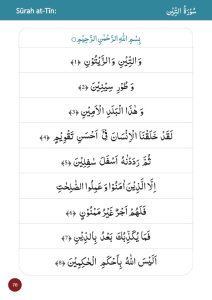 Sūrah at-Tīn: سُوْرَةُ التِّيْنِ
بِسْمِ اللهِ الرَّحْمٰنِ الرَّحِيْمِ
وَ التِّيْنِ وَ الزَّيْتُوْنِ ﴿1﴾
وَ طُوْرِ سِيْنِيْنَ ﴿2﴾
وَ هٰذَا الْبَلَدِ الْاَمِيْنِ ﴿3﴾
لَقَدْ خَلَقْنَا الْاِنْسَانَ فِيْٓ اَحْسَنِ تَقْوِيْمٍ ﴿4﴾
ثُمَّ رَدَدْنٰهُ اَسْفَلَ سٰفِلِيْنَ ﴿5﴾
اِلَّا الَّذِيْنَ اٰمَنُوْا وَ عَمِلُوا الصّٰلِحٰتِ
فَلَهُمْ اَجْرٌ غَيْرُ مَمْنُوْنٍ ﴿6﴾
فَمَا يُكَذِّبُكَ بَعْدُ بِالدِّيْنِ ﴿7﴾
اَلَيْسَ اللهُ بِاَحْكَمِ الْحٰكِمِيْنَ ﴿8﴾